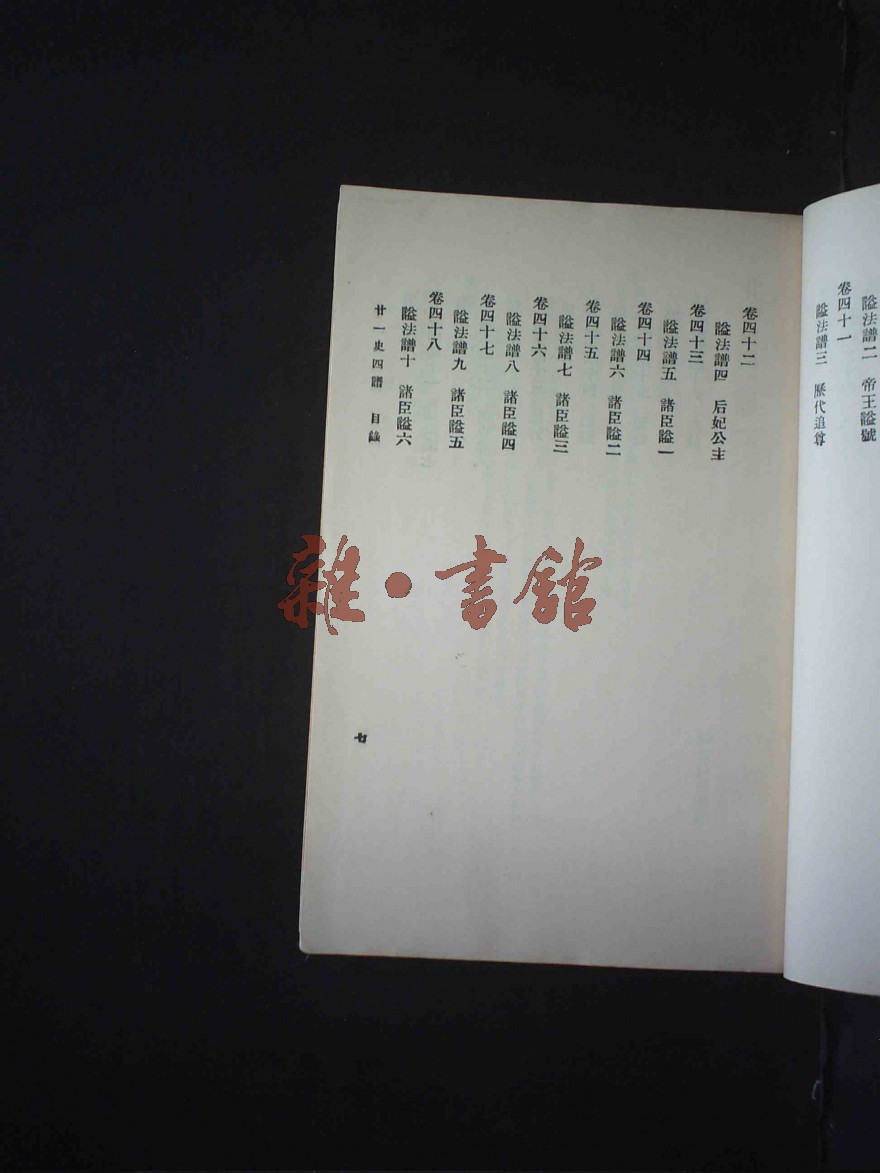 謚法譜二　帝王謚號
卷四十一
謚法譜三　歷代追尊
卷四十二
謚法譜四　后妃公主
卷四十三
謚法譜五　諸臣謚一
卷四十四
謚法譜六　諸臣謚二
卷四十五
謚法譜七　諸臣謚三
卷四十六
謚法譜八　諸臣謚四
卷四十七
謚法譜九　諸臣謚五
卷四十八
謚法譜十　諸臣謚六
廿一史四譜　目錄
七
雜·書館